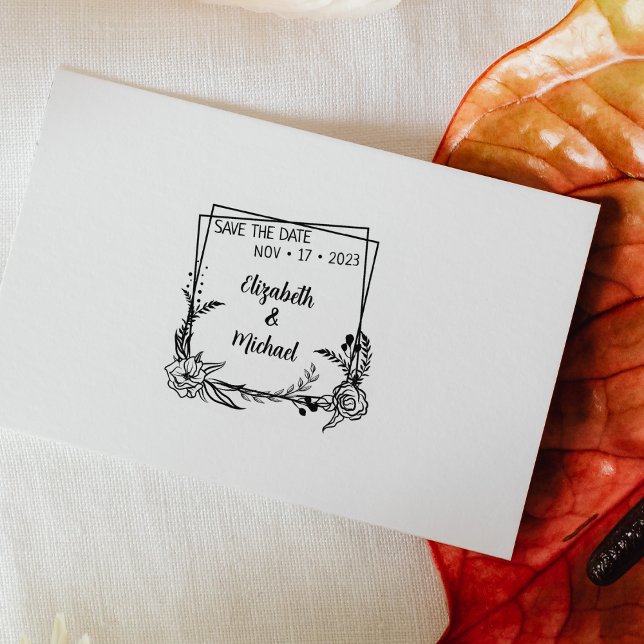 SAVE THE DATE
NOV • 17 • 2023
Elizabeth
&
Michael